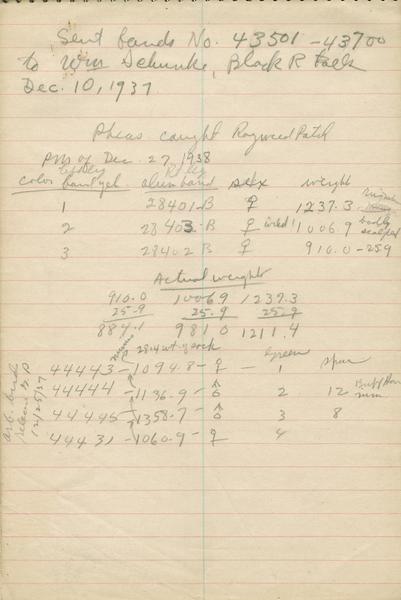 Sent bands No. 43501 - 43700
to Wm Schunke, Black R Falls
Dec. 10, 1937
Pheas. caught Ragweed Patch
PM of Dec. 27, 1938
color band yel. alum band sex weight
1 28401-B ♀ 1237.3
2 28403-B ♀ 1006.9 badly scalped
3 28402-B ♀ 910.0 - 25.9
Actual weights
910.0 1006.9 1237.3
25.9 25.9 25.9
884.1 981 0 1211.4
28.4 wt of sock
green spur
44443 - 1094.8 - ♀ - 1
44444 - 1136.9 - ♂ 2 12
44445 - 1358.7 - ♂ 3 8
44431 - 1060.9 - ♀ 4
12/25/37